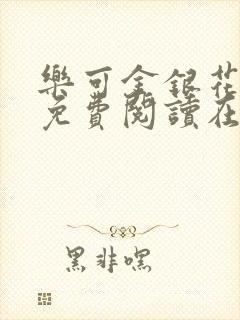 樂可金銀花
免費閱讀在
黑非嘿